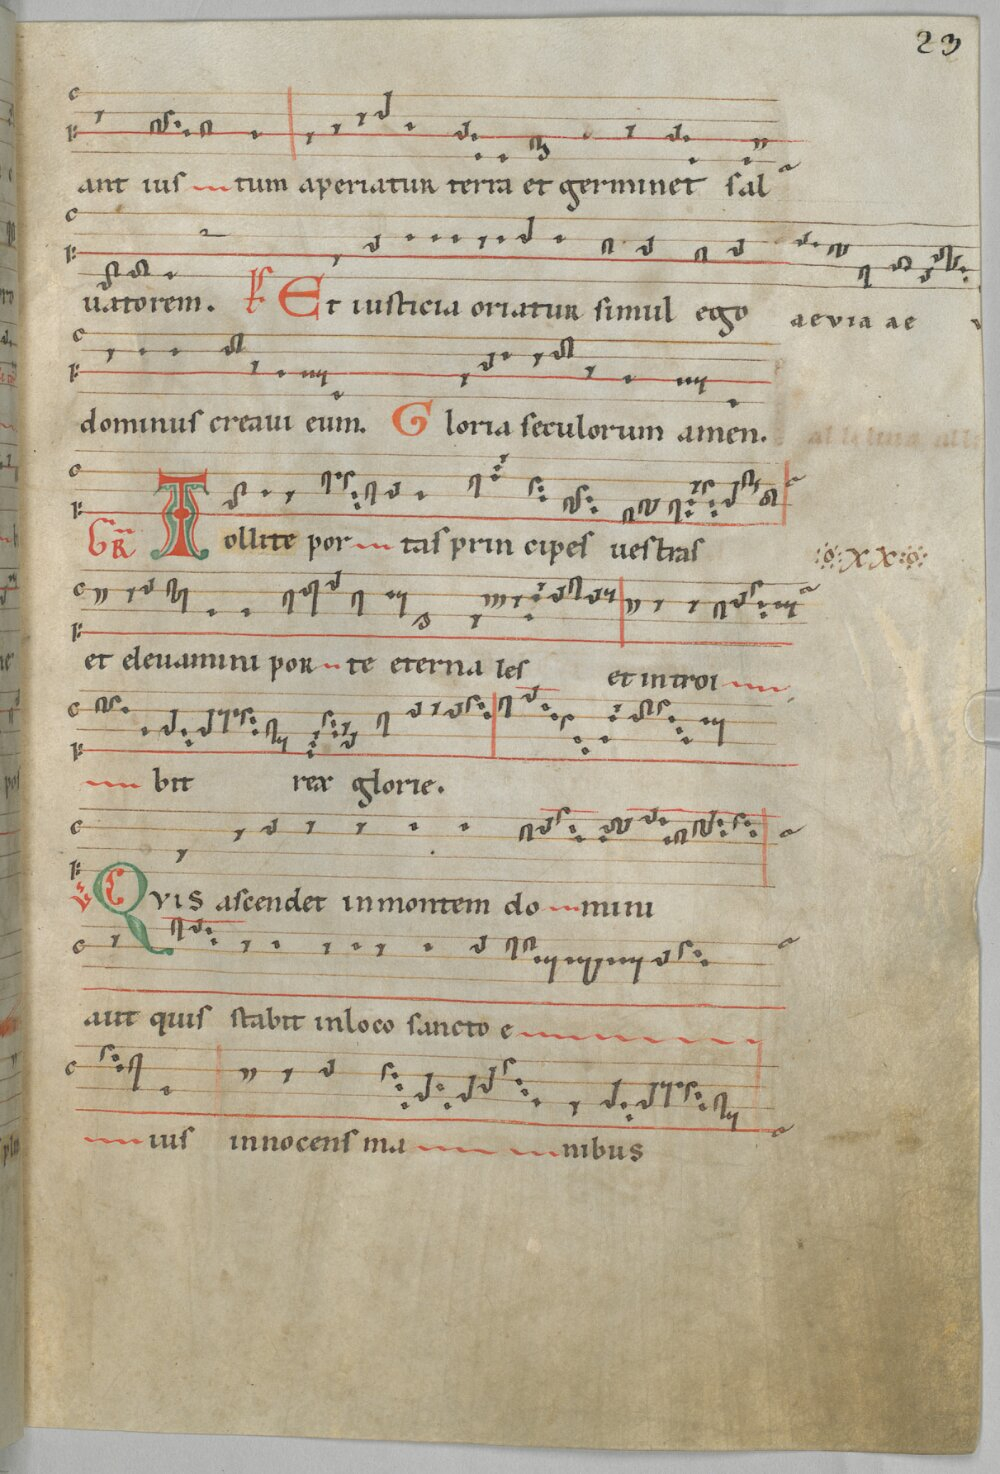 23
ant ius tum aperiatur terra et germinet sal
uatorem. Et iusticia oriatur simul ego aevia ae
dominus creaui eum. Gloria seculorum amen.
GR Tollite por tas prin cipes uestras
xx
et eleuamini por te eterna les et introi
bit rex glorie.
Quis ascendet inmontem do mini
aut quis stabit inloco sancto e
ius innocens ma nibus